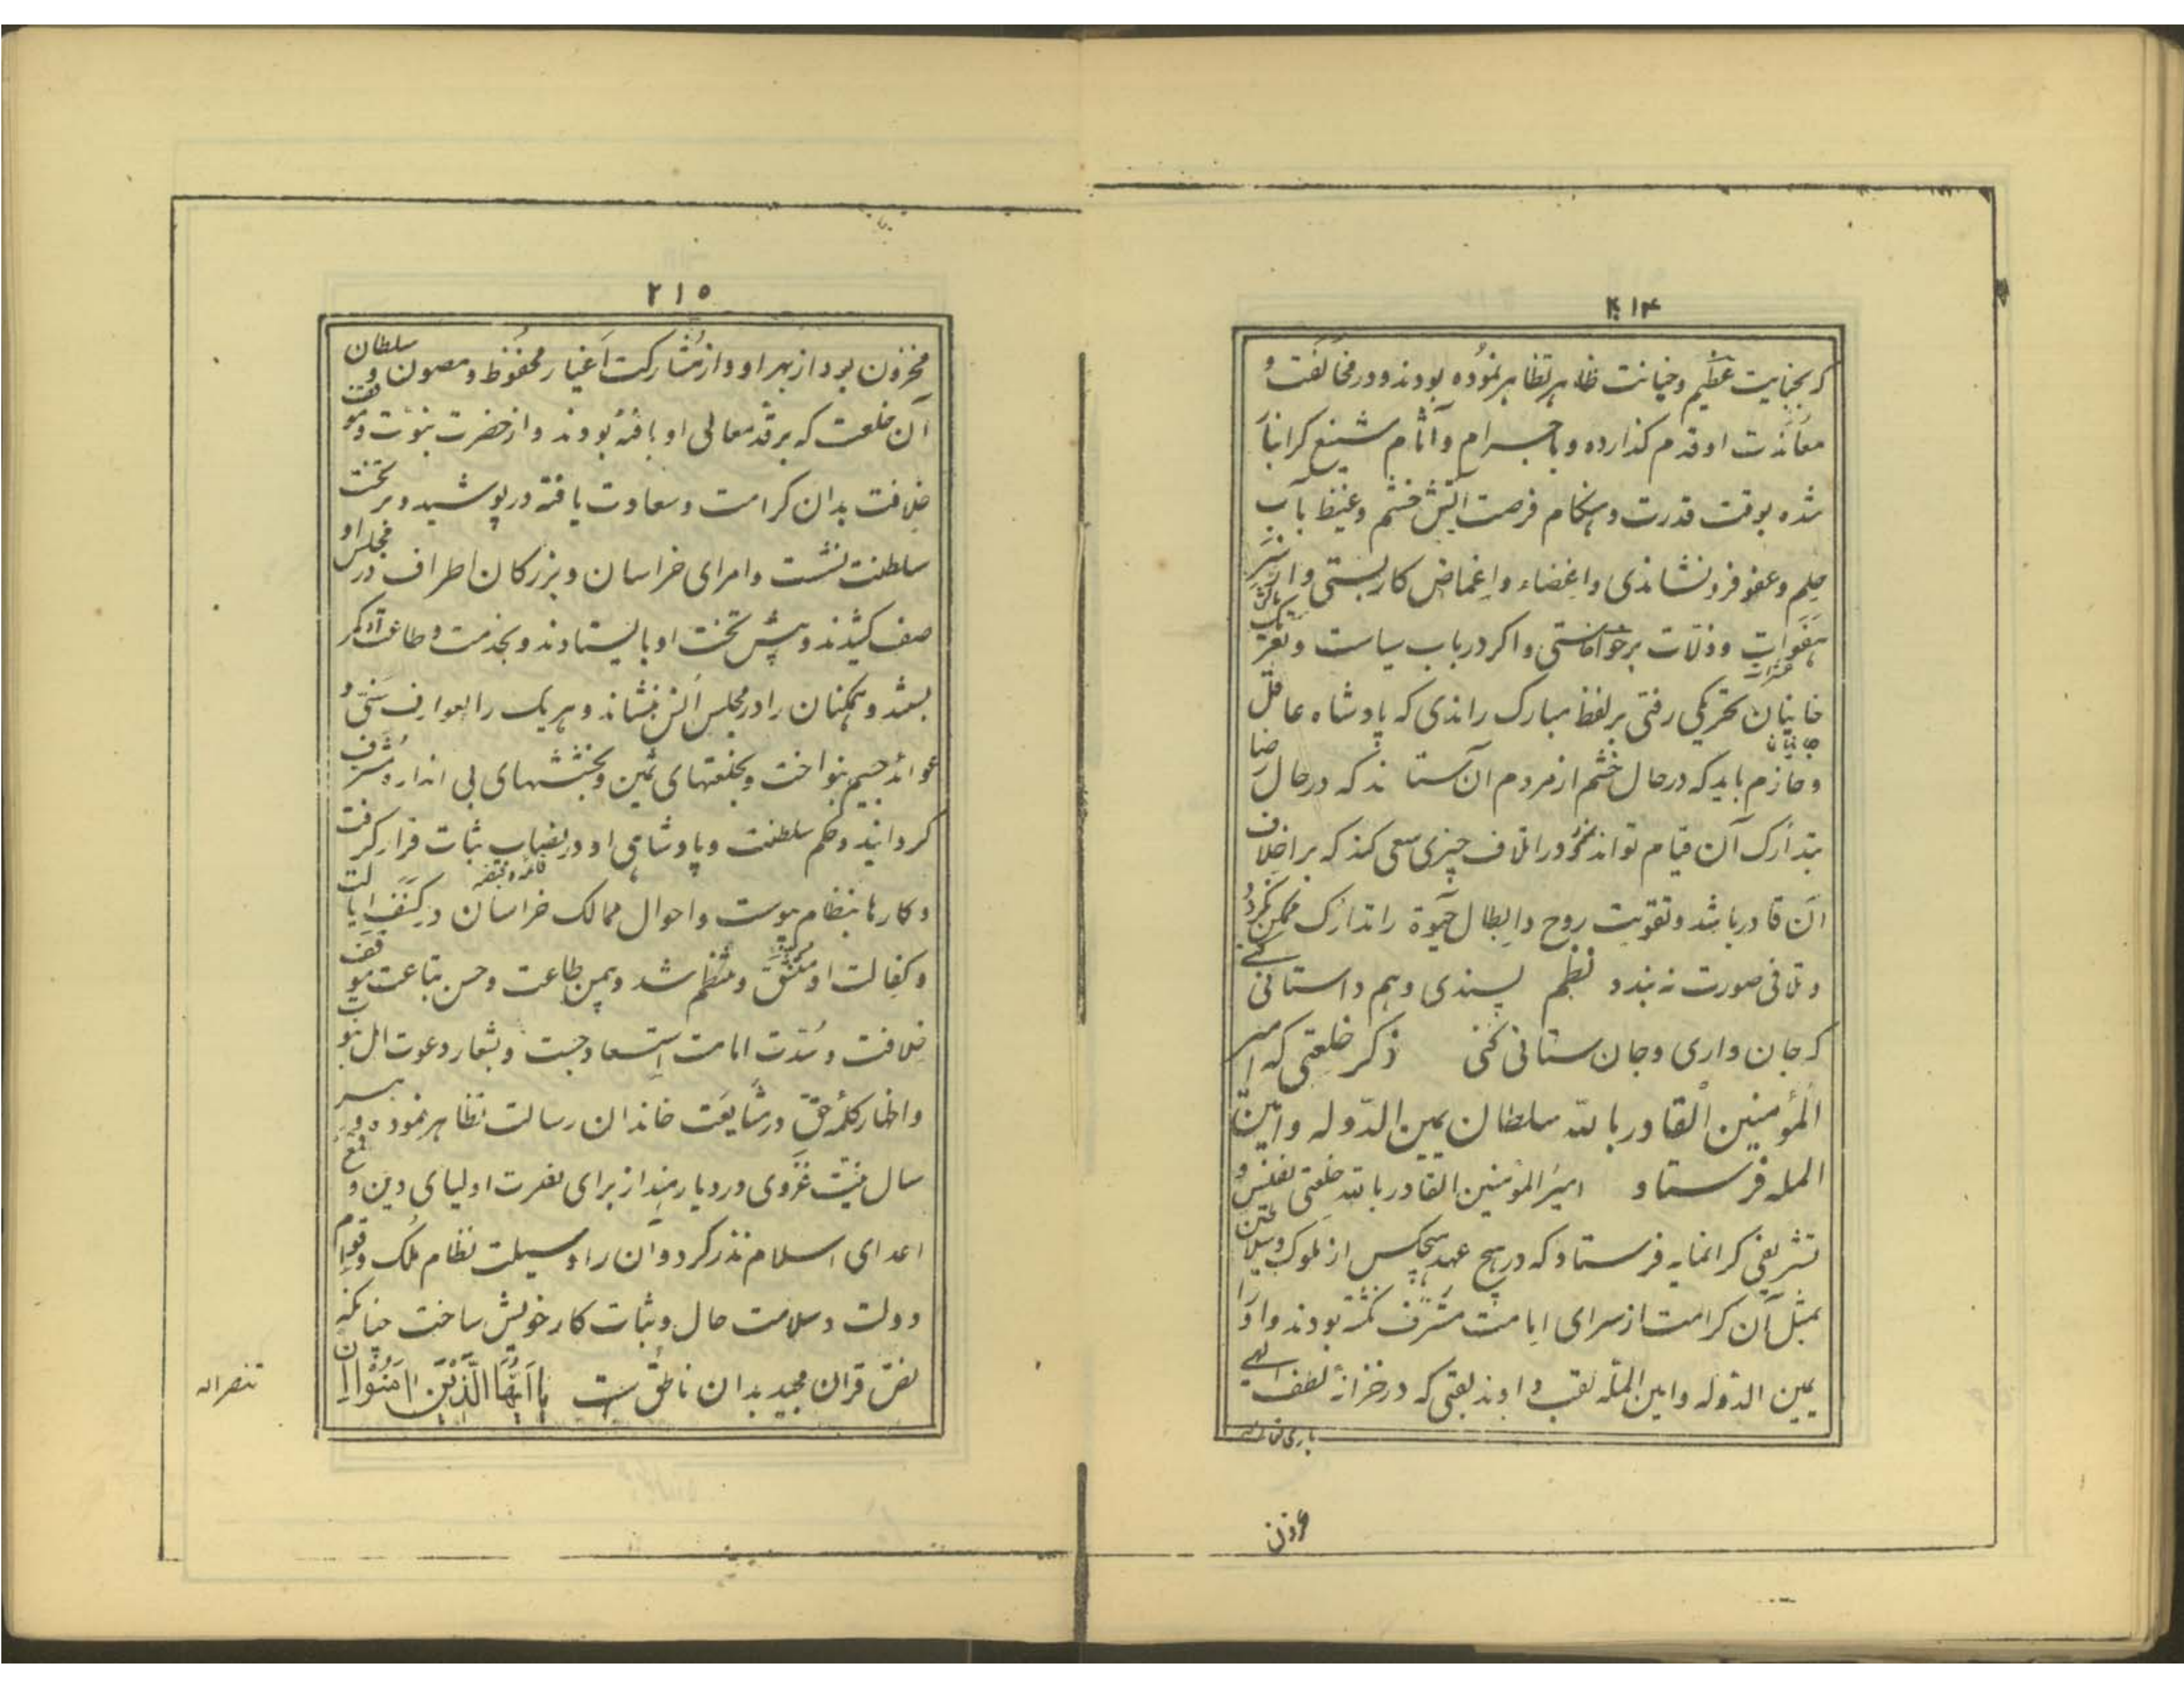 ۲۱۴
که بجنایت عظیم و خیانت ظاهر تظاهر نموده بودند و در مخالفت و
معاندت او قدم گذارده و باجرام و آثام شنیع گرانبار
شده بوقت قدرت و هنگام فرصت آتش خشم و غیظ بآب
حلم و عفو فرو نشاندی و اغضاء و اغماض کار بستی و از سر
هفوات و زلات برخواستی و اگر در باب سیاست و تعریک
خاینان تحریکی رفتی بر لفظ مبارک راندی که پادشاه عاقل
و حازم باید که در حال خشم از مردم آن ستاند که در حال رضا
بتدارک آن قیام تواند نمود و در اتلاف چیزی سعی کند که بر اخلاف
آن قادر باشد و تفویت روح و ابطال حیوة را تدارک ممکن نگردد
و تلافی صورت نه بندد نظم پسندی و هم داستانی کنی
که جان داری و جان ستانی کنی ذکر خلعتی که امیر
المؤمنین القادر بالله سلطان یمین الدوله و امین
المله فرستاد امیر المؤمنین القادر بالله خلعتی نفیس و
تشریفی گرانمایه فرستاد که در هیچ عهد هیچکس از ملوک و سلاطین
بمثل آن کرامت از سرای امامت مشرف نگشته بودند و او را
یمین الدوله و امین المله لقب دادند بلقبی که در خزانه لطف الهی
باری تعالی
مخزون
۲۱۵
مخزون بود از بهر او و از مشارکت اغیار محفوظ و مصون و سلطان
آن خلعت که بر قد معالی او بافته بودند و از حضرت نبوت و موقف
خلافت بدان کرامت و سعادت یافته در پوشید و بر تخت
سلطنت نشست و امرای خراسان و بزرگان اطراف در مجلس او
صف کشیدند و پیش تخت او بایستادند و بخدمت و طاعت او کمر
بستند و همگنان را در مجلس انس بنشاند و هر یک را بعوارف سنی و
عوائد جسیم بنواخت و بخلعتهای ثمین و بخششهای بی اندازه مشرف
گردانید و حکم سلطنت و پادشاهی او در نصاب ثبات قرار گرفت
و کارها بنظام پیوست و احوال ممالک خراسان در کنف ایالت
و کفالت او متسق و منتظم شد و بیمن طاعت و حسن تباعت موقف
خلافت و سدت امامت استسعاد جست و بشعار دعوت اهل نبوت
و اظهار کلمه حق در مشایعت خاندان رسالت تظاهر نمود و در هر
سال بنیت غزوی در دیار هند از برای نصرت اولیای دین و قمع
اعدای اسلام نذر کرد و آن را وسیلت نظام ملک و قوام
دولت و سلامت حال و ثبات کار خویش ساخت چنانکه
نص قران مجید بدان ناطق است یا ایها الذین امنوا ان
تنصر اله